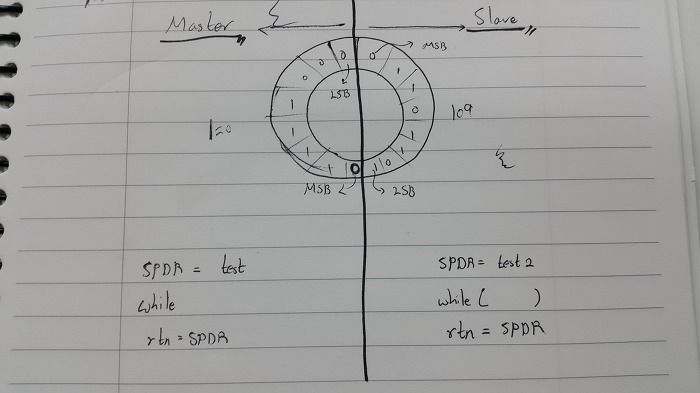 Master Slave
MSB
0 0 0 0
LSB
1 1
1 1
1 0
120 109
1 1
1 1
1 0 1 0
MSB LSB
SPDR = test SPDR = test 2
while while ( )
rtn = SPDR rtn = SPDR